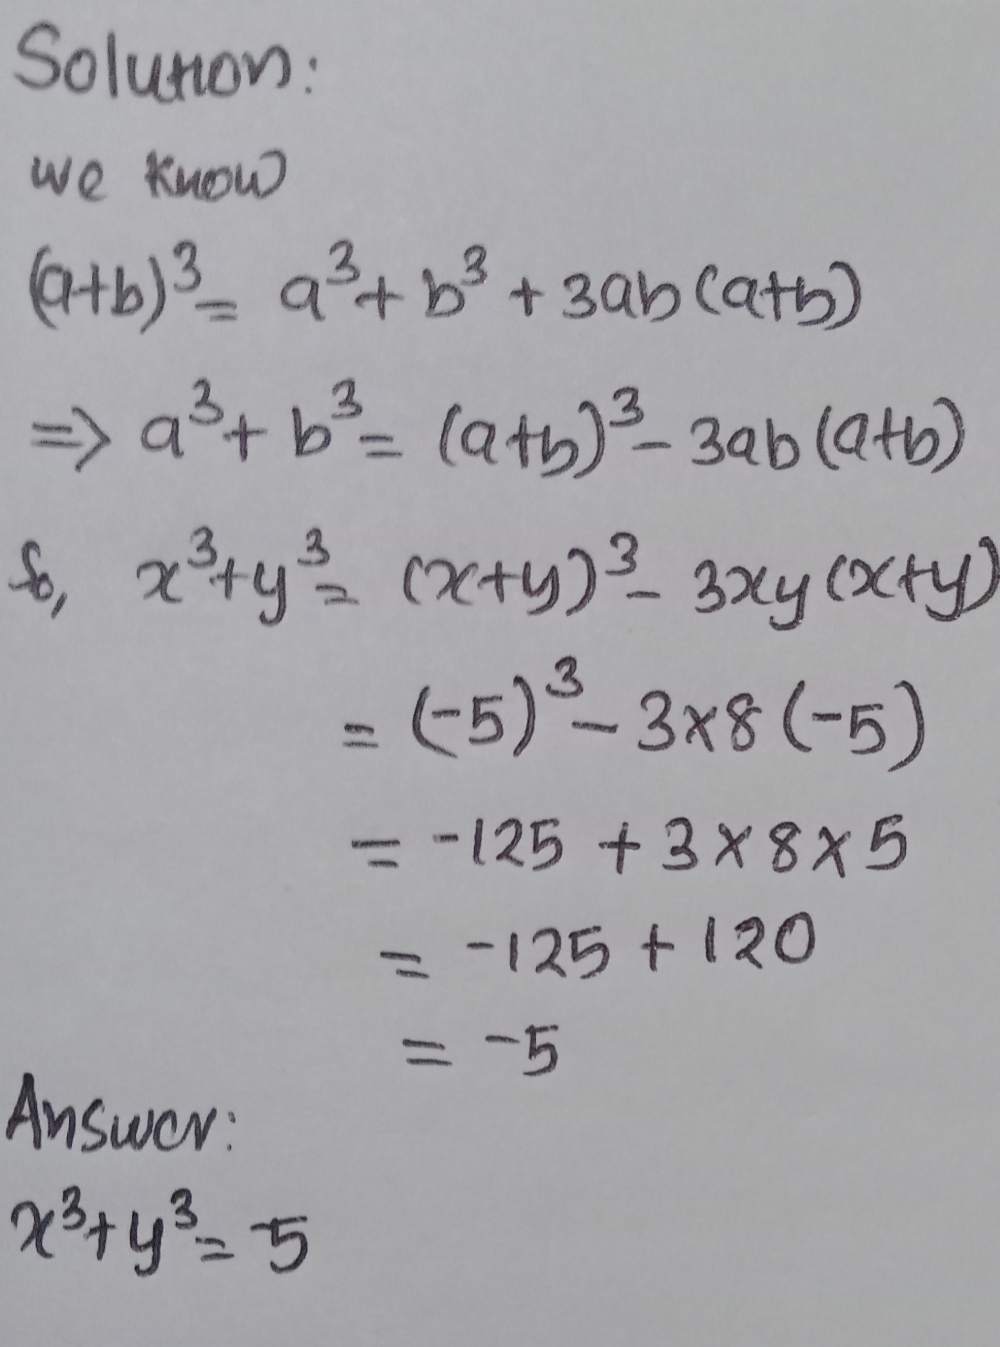 Solution:
we know
(a+b)³ = a³ + b³ + 3ab(a+b)
⇒ a³ + b³ = (a+b)³ - 3ab(a+b)
So, x³+y³ = (x+y)³ - 3xy(x+y)
= (-5)³ - 3×8(-5)
= -125 + 3×8×5
= -125 + 120
= -5
Answer:
x³+y³ = -5